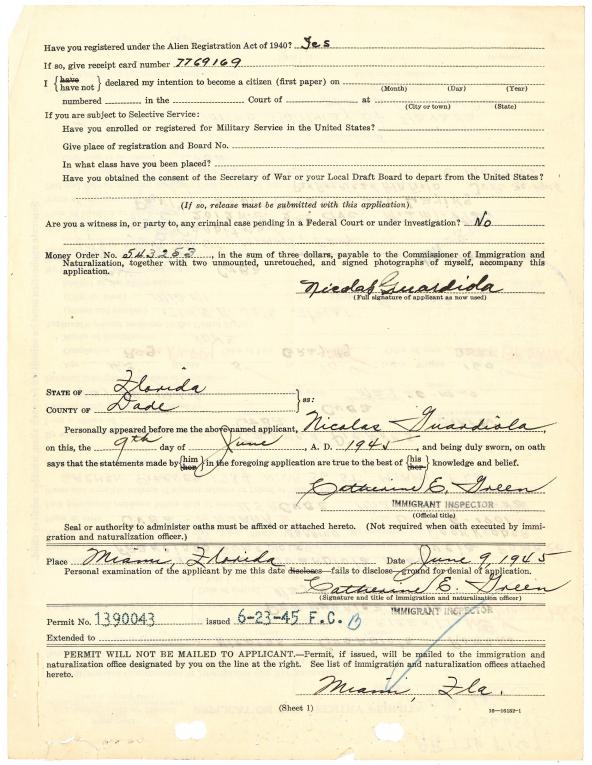 Have you registered under the Alien Registration Act of 1940? Yes
If so, give receipt card number 7769169
I {have / have not} declared my intention to become a citizen (first paper) on
(Month) (Day) (Year)
numbered in the Court of at
(City or town) (State)
If you are subject to Selective Service:
Have you enrolled or registered for Military Service in the United States?
Give place of registration and Board No.
In what class have you been placed?
Have you obtained the consent of the Secretary of War or your Local Draft Board to depart from the United States?
(If so, release must be submitted with this application)
Are you a witness in, or party to, any criminal case pending in a Federal Court or under investigation? No
Money Order No. 543253, in the sum of three dollars, payable to the Commissioner of Immigration and
Naturalization, together with two unmounted, unretouched, and signed photographs of myself, accompany this
application.
Nicolas Guardiola
(Full signature of applicant as now used)
STATE OF Florida
COUNTY OF Dade } ss:
Personally appeared before me the above-named applicant, Nicolas Guardiola,
on this, the 9th day of June, A. D. 1945, and being duly sworn, on oath
says that the statements made by {him / her} in the foregoing application are true to the best of {his / her} knowledge and belief.
Catherine E. Green
IMMIGRANT INSPECTOR
(Official title)
Seal or authority to administer oaths must be affixed or attached hereto. (Not required when oath executed by immi-
gration and naturalization officer.)
Place Miami, Florida Date June 9, 1945
Personal examination of the applicant by me this date discloses—fails to disclose—ground for denial of application.
Catherine E. Green
(Signature and title of immigration and naturalization officer)
IMMIGRANT INSPECTOR
Permit No. 1390043 issued 6-23-45 F.C. B
Extended to
PERMIT WILL NOT BE MAILED TO APPLICANT.—Permit, if issued, will be mailed to the immigration and
naturalization office designated by you on the line at the right. See list of immigration and naturalization offices attached
hereto.
Miami, Fla.
(Sheet 1)
16—16152-1